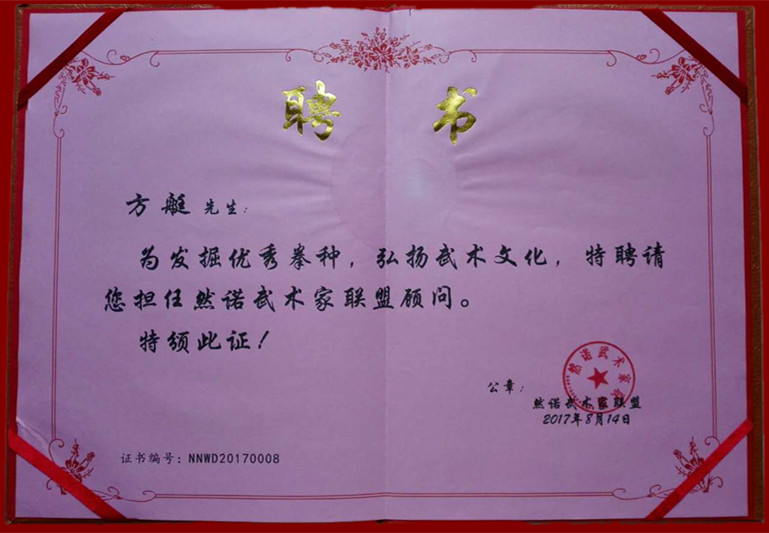 聘 书
方艇 先生：
为发掘优秀拳种，弘扬武术文化，特聘请
您担任然诺武术家联盟顾问。
特颁此证！
然诺武术家
公章：
然诺武术家联盟
2017年8月14日
证书编号：NNWD20170008